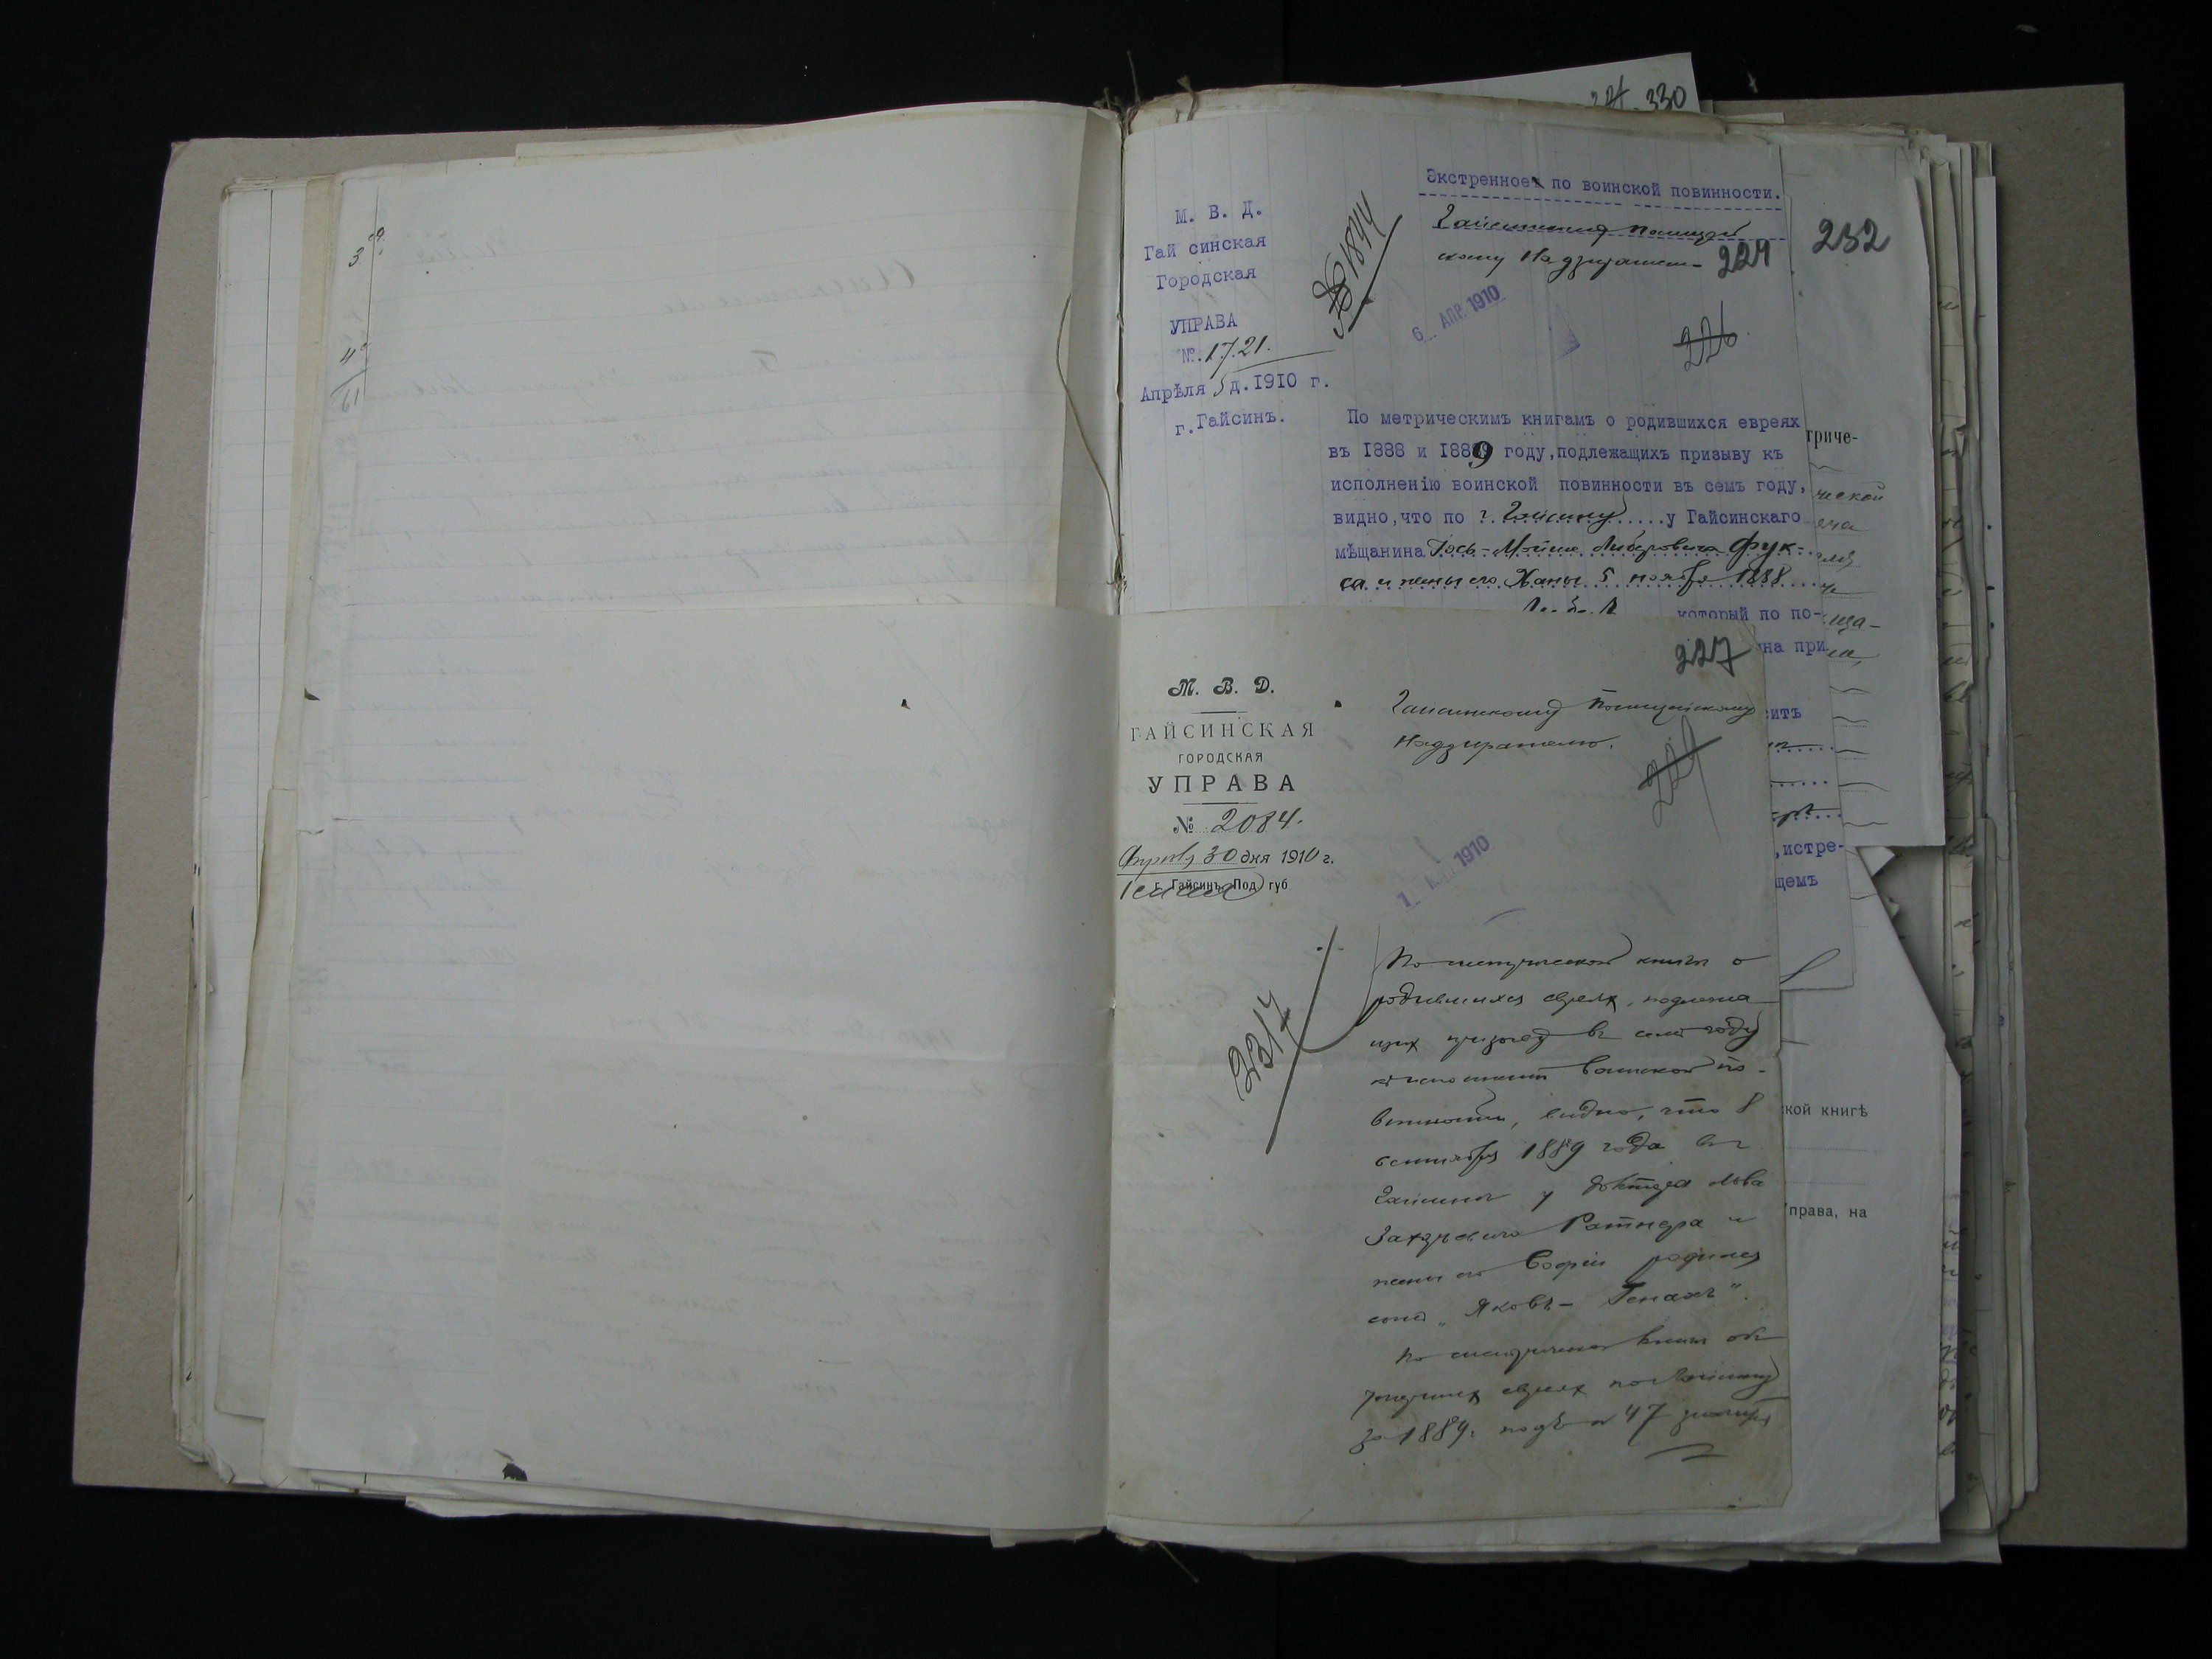 227. 330
Экстренное по воинской повинности.
М. В. Д.
Гай синская
Городская
УПРАВА
№. 1721.
Апрѣля 5 д. 1910 г.
г. Гайсинъ.
№ 1844
Гайсинскому Полицей
скому Надзирателю
229
232
6 АПР. 1910
226
По метрическимъ книгамъ о родившихся евреях
въ 1888 и 1889 году, подлежащихъ призыву къ
исполненію воинской повинности въ семъ году,
видно, что по г. Гайсину у Гайсинскаго
мѣщанина Іось-Мойше Либеровича Фук-
са и жены его Ханы 5 ноября 1888
который по по-
на при
ситъ
,истре-
щемъ
триче-
ческой
ща-
ской книгѣ
Управа, на
227
М. В. Д.
ГАЙСИНСКАЯ
ГОРОДСКАЯ
УПРАВА
№ 2084.
Апрѣля 30 дня 1910 г.
г. Гайсинъ, Под. губ
1 мая
Гайсинскому Полицейскому
Надзирателю.
224
1 МАЯ 1910
2317
По метрической книгѣ о
родившихся евреях, подлежа
щих призыву въ семъ году
къ исполненію воинской по-
винности, видно, что 8
сентября 1889 года въ г
Гайсинѣ у доктора Льва
Захаревича Ратнера и
жены его Софіи родился
сынъ „Яковъ- Генахъ".
По метрической книгѣ об
умерших евреях по Гайсину
за 1889 г. подъ № 47 значится
3
4
61